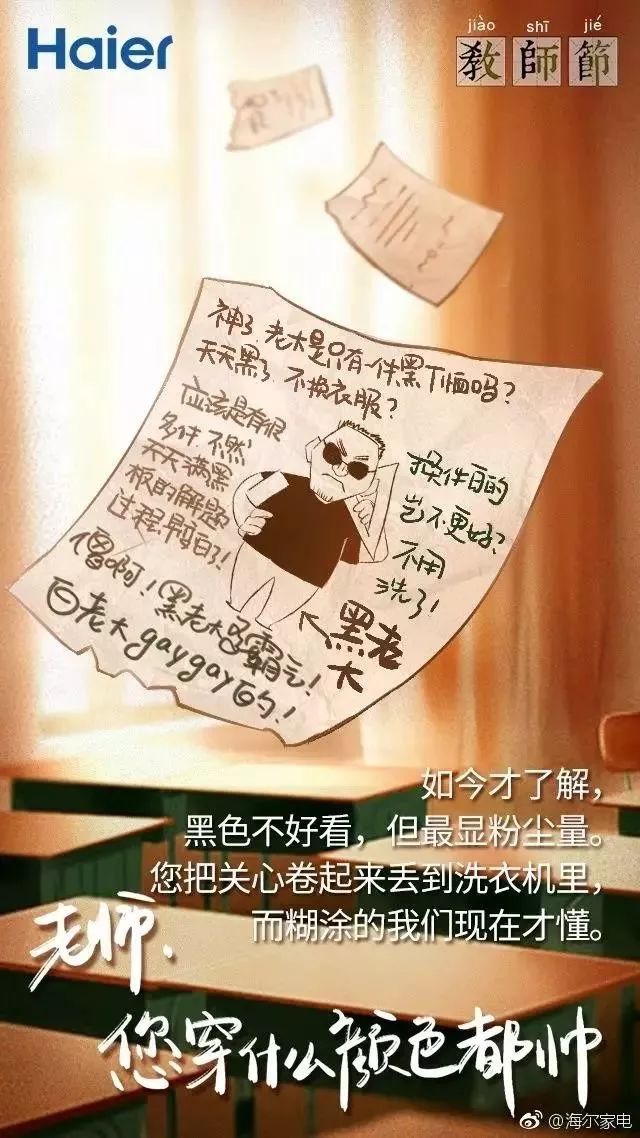 Haier
jiào shī jié
教師節
神了 老大是只有一件黑T恤吗?
天天黑了 不换衣服?
应该是有很
多件 不然
天天满黑
板的解题
过程早白了!
换件白的
岂不更好?
不用
洗了!
傻啊! 黑老大多霸气!
白老大gaygay的!
黑老
大
如今才了解，
黑色不好看，但最显粉尘量。
您把关心卷起来丢到洗衣机里，
而糊涂的我们现在才懂。
老师、
您穿什么颜色都帅
@海尔家电